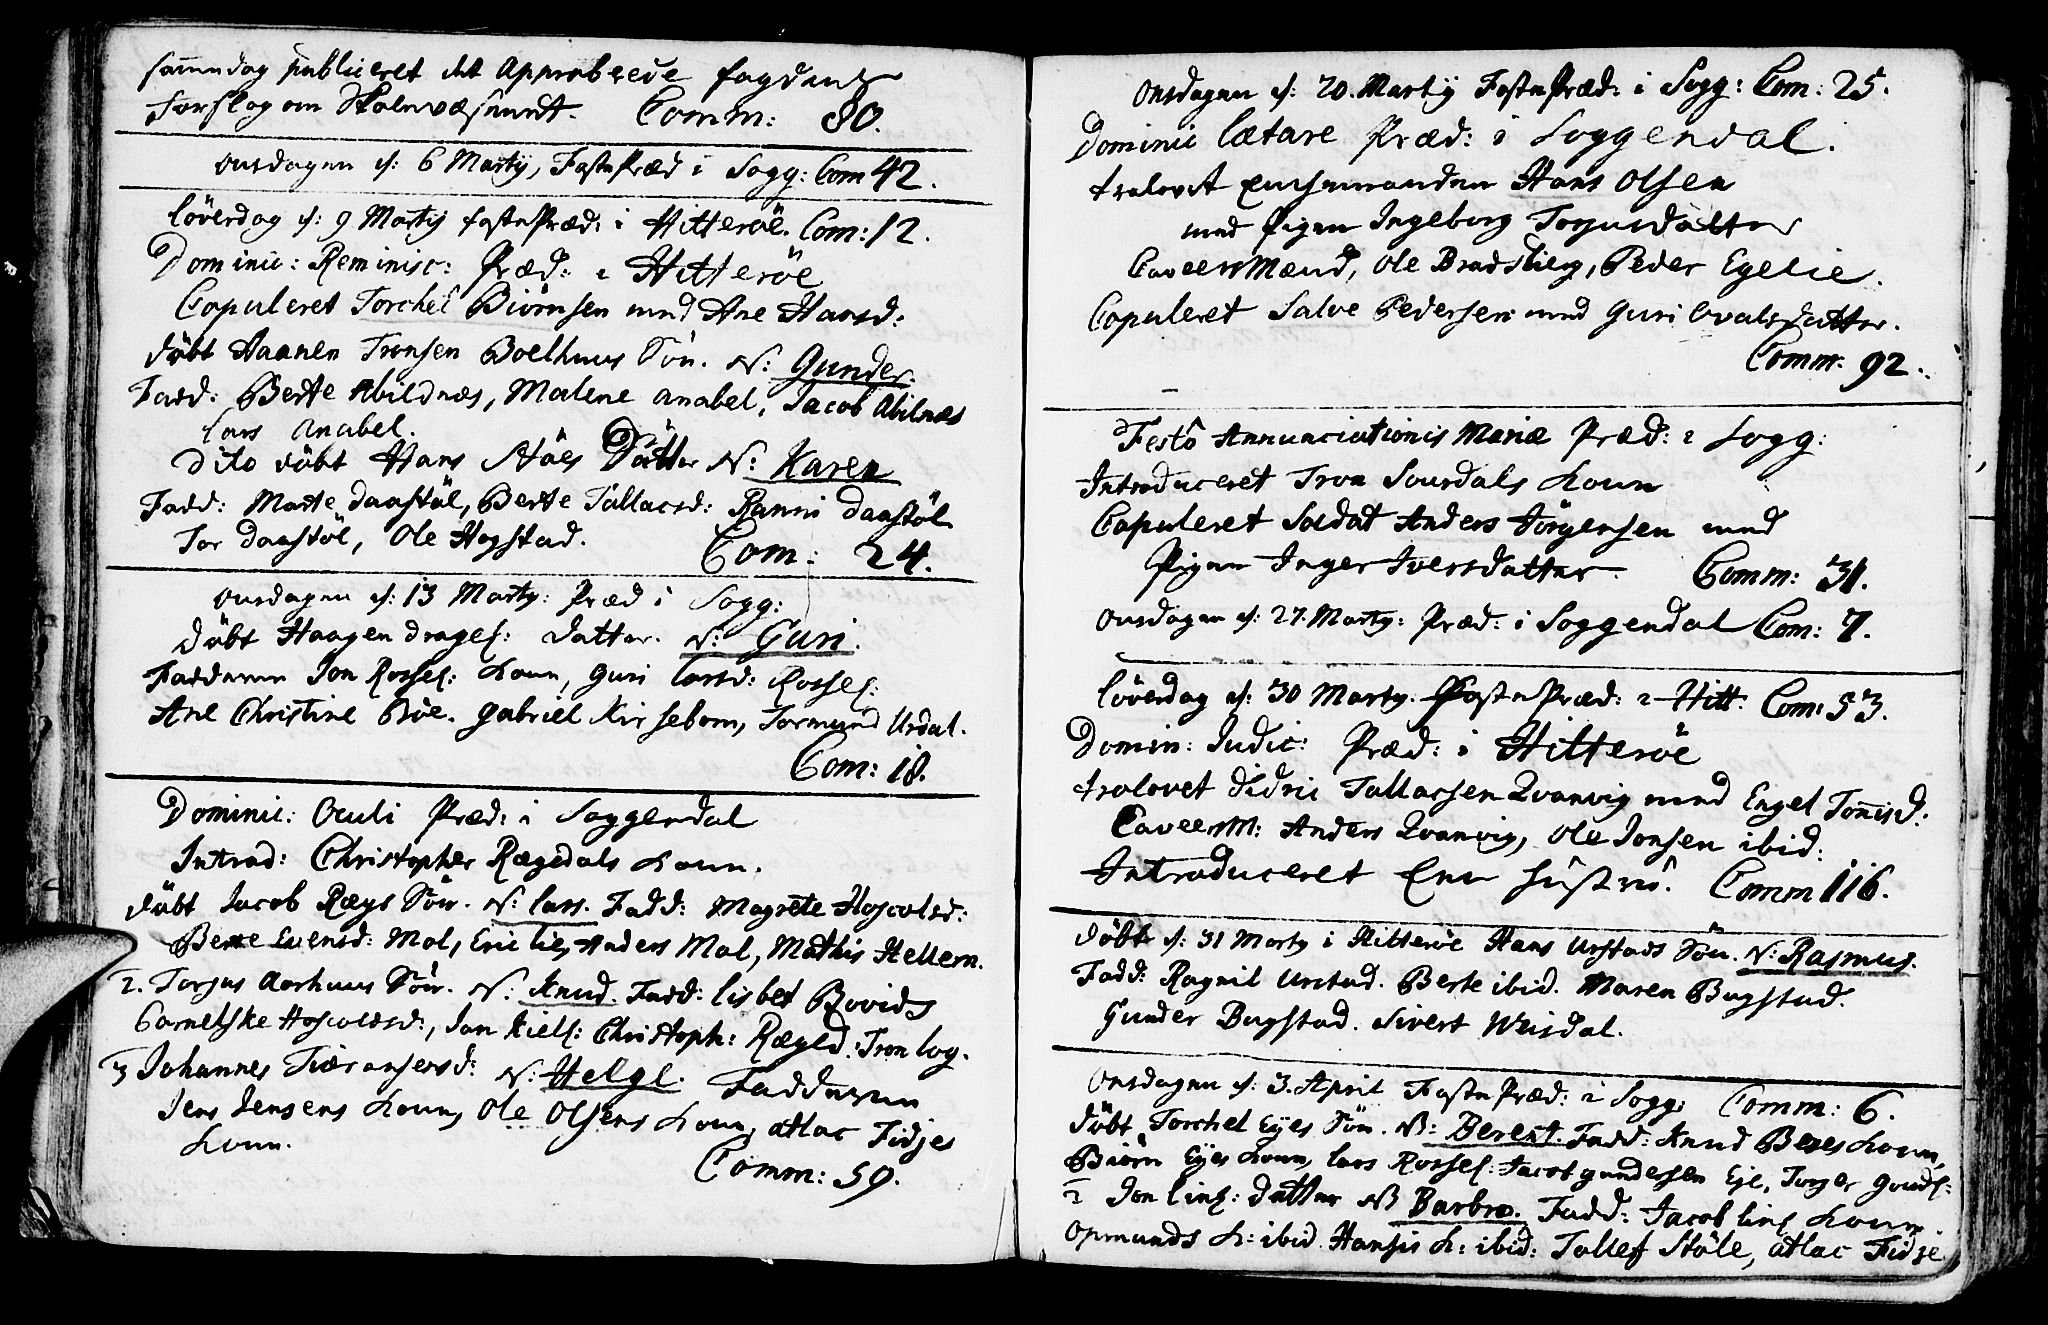 samedag publiceret det Approberede fogdens
Forslag om Skolevæsenet. Comm: 80.
onsdagen d: 6 Martij, FastePræd i Sogg: Com 42.
löverdag d: 9 Martij fastePræd: i Hitteröe. Com: 12.
Dominic: Reminisc: Præd: i Hitteröe
Copuleret Torchel Biörnsen med Ane Hansd:
döbt Haanen Tronsen Boelhuus Sön. N: Gunder.
Fadd: Berte Abildnæs, Malene Anabel, Jacob Abilnæs
Lars Anabel.
Dito döbt Hans Stöls Datter N: Karen
Fadd: Marte Daastöl, Berte Tallacsd: Ranni Daastöl
Tor Daastöl, Ole Hogstad. Com: 24.
onsdagen d: 13 Marty: Præd i Sogg:
döbt Haagen Drages: datter. N: Guri.
Fadderne Jon Rosses: Kone, Guri Larsd: Rosses:
Ane Christine Böe. Gabriel Kirsebom, Tormund Urdal.
Com: 18.
Dominic: Oculi Præd: i Soggendal
Introd: Christopher Rægedals Kone.
döbt Jacob Rægs Sön. N: Lars. Fadd: Magrete Hoscolsd:
Berte Evensd: Mol, Eric Lie, Anders Mol, Mathis Hellern.
2. Torgus Aarhuus Sön. N: Knud. Fadd: Lisbet Bovids
Cornelske Hoscolsd:, Jan Kiels: Christoph: Rægd: Tron Log.
3 Johannes Tiøransensd: N: Helge. Fadderne
Jens Jensens Kone, Ole Olsens Kone, Atlac Fidjes
Kone. Comm: 59.
Onsdagen d: 20. Martij FastePræd: i Sogg: Com: 25.
Dominic Lætare Præd: i Soggendal.
trolovet Enkemanden Hans Olsen
med Pigen Ingeborg Torgersdatter
Caveers Mænd, Ole Bradsberg, Peder Egelie.
Copuleret Salve Pedersen med Guri Ovalsdatter.
Comm: 92.
Festo Annunciationis Mariæ Præd: i Sogg:
Introduceret Tron Sourdals Kone
Copuleret Soldat Anders Jörgensen med
Pigen Inger Iversdatter. Comm: 31.
onsdagen d: 27. Marty: Præd: i Soggendal Com: 7.
löverdag d: 30 Marty. FastePræd: i Hitt: Com: 53.
Domin: Judic: Præd: i Hitteröe
trolovet Didric Tallacsen Qvanvig med Engel Tönisd:
CaveersM: Anders Qvanvig, Ole Jonsen ibid:
Introduceret Een hustrue. Comm 116.
döbt d: 31 Marty i Hitteröe Hans Urstads Sön. N: Rasmus.
Fadd: Ragnil Urstad. Berte ibid. Maren Bugstad.
Gunder Bugstad. Sivert Weisdal.
Onsdagen d: 3. April FastePræd: i Sogg: Comm: 6.
döbt Torchel Eyes Sön. N: Berent. Fadd: Knud Beres Kone,
Biörn Eyes Kone, Lars Rosses: Jacob Gundersen Eje, Torger Gouds:
2 Jon Lins: datter N Barbro. Fadd: Jacob Lins Kone
Opmunds K: ibid. Hansis K: ibid: Tollef Stöle, Atlac Fidje